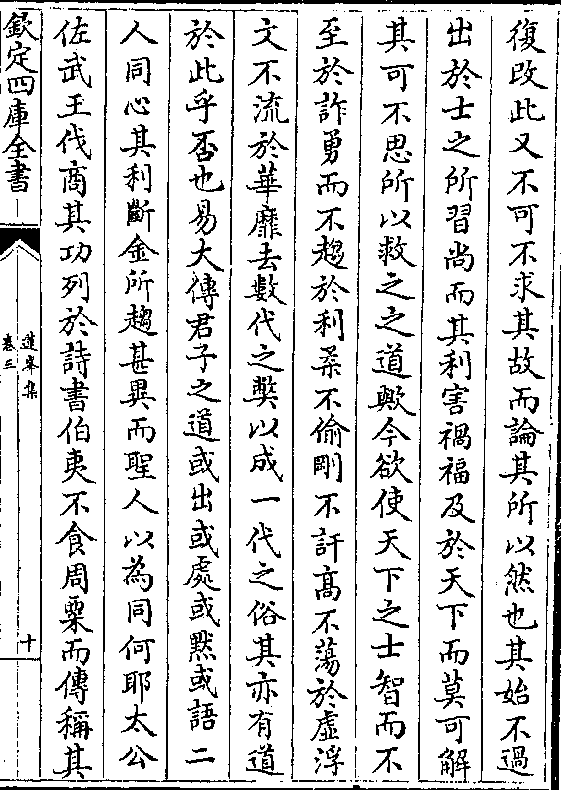 復改此又不可不求其故而論其所以然也其始不過
出於士之所習尚而其利害禍福及於天下而莫可解
其可不思所以救之之道歟今欲使天下之士智而不
至於詐勇而不趨於利柔不偷剛不訐髙不蕩於虚浮
文不流於華靡去數代之獘以成一代之俗其亦有道
於此乎否也易大傳君子之道或出或處或黙或語二
人同心其利斷金所趨甚異而聖人以為同何耶太公
佐武王伐商其功列於詩書伯夷不食周粟而傳稱其
欽定四庫全書
蓮峯集
卷三
十